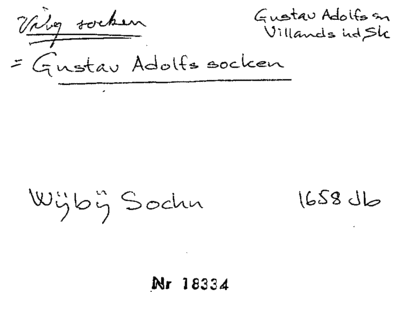 Viby socken
Gustav Adolfs sn
Villands hd, Sk
= Gustav Adolfs socken
Wÿbÿ Sochn
1658 Jb
Nr 18334